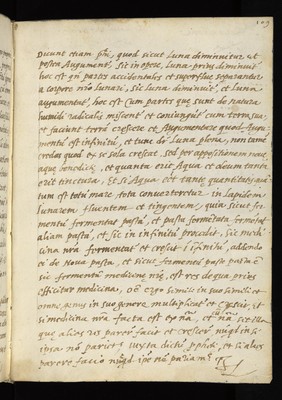 Dicunt etiam phi, quod sicut Luna diminuitur ut
postea Augument', Sic in opere, Luna prius diminuit'
hoc est qn partes accidentales et superfluæ separantur
a corpore nro lunari, sic Luna diminuit' et Luna
augumentat', hoc est cum partes quæ sunt de natura
humidi radicalis miscent' et coniungit' cum terra sua,
et faciunt terrã crescere et Augumentare quod Augu-
mentũ est infinitũ, et tunc dr Luna plena, non tamẽ
credas quod ex se sola crescat, sed per appositionem
aquæ benedictæ, et quanta erit Aqua
erit tinctura, Et si Aqua eẽt tantæ quantitatis quã
tum est totũ mare tota converteretur in Lapidem
lunarem fluentem et tingentem, quia sicut fer-
mentũ fermentat pasta, et pasta fermẽtata fermẽtat
aliam pasta, et sic in infinitũ procedit, sic medi-
cina nra fermentat et crescit infinitũ, addendo
ei de Nova pasta, et sicut fermentũ pastæ pasta
sic fermentũ medicinæ nræ, est res de qua prius
efficitur medicina, ergo simili in suo simili et
omne genus in suo genere multiplicat' et
si medicina nra facta est ex nã, et nã
que alias res parere facit et crescere
ipsa nõ pariet iuxta dictũ et si alias
parere facio ipse nõ pariam